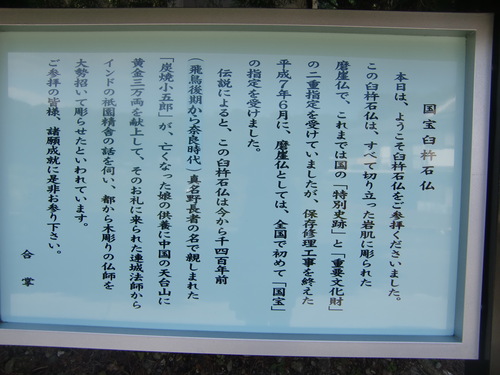 国宝臼杵石仏
本日は、ようこそ臼杵石仏をご参拝くださいました。
この臼杵石仏は、すべて切り立った岩肌に彫られた
磨崖仏で、これまでは国の「特別史跡」と「重要文化財」
の二重指定を受けていましたが、保存修理工事を終えた
平成7年6月に、磨崖仏としては、全国で初めて「国宝」
の指定を受けました。
伝説によると、この臼杵石仏は今から千四百年前
(飛鳥後期から奈良時代)真名野長者の名で親しまれた
「炭焼小五郎」が、亡くなった娘の供養に中国の天台山に
黄金三万両を献上して、そのお礼に来られた連城法師から
インドの祇園精舎の話を伺い、都から木彫りの仏師を
大勢招いて彫らせたといわれています。
ご参拝の皆様、諸願成就に是非お参り下さい。
合掌